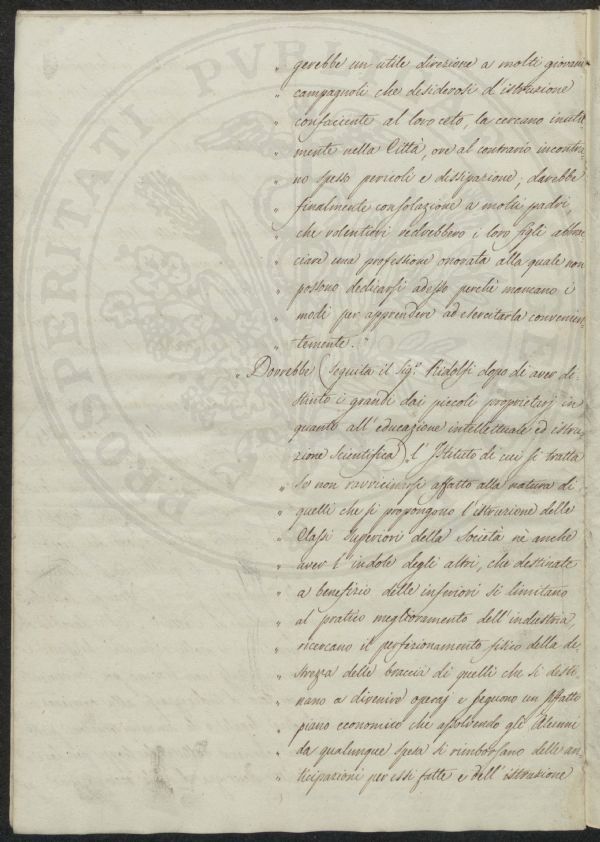 „ gerebbe un utile direzione a molti giovani
„ campagnoli che desiderosi d'istruzione
„ confaciente al loro ceto, la cercano inutil
„ mente nella Città, ove al contrario incontra
„ no spesso pericoli e dissipazione; darebbe
„ finalmente consolazione a molti padri,
„ che volentieri vedrebbero i loro figli abbrac
„ ciare una professione onorata alla quale non
„ possono dedicarsi adesso perchè mancano i
„ modi per apprendere ad esercitarla convenien
„ temente. „
„ Dovrebbe (seguita il Sig.r Ridolfi dopo di aver di=
stinto i grandi dai piccoli proprietarj in
quanto all'educazione intellettuale ed istru
zione scientifica) l'Istituto di cui si tratta
„ se non ravvicinarsi affatto alla natura di
„ quelli che si propongono l'istruzione delle
„ Classi superiori della Società nè anche
„ aver l'indole degli altri, che destinate
„ a benefizio delle inferiori si limitano
„ al pratico miglioramento dell'industria,
„ ricercano il perfezionamento fisico della de
„ strezza delle braccia di quelli che si desti
„ nano a divenire operaj e seguono un sì fatto
„ piano economico che assolvendo gli Alunni
„ da qualunque spesa si rimborsano delle an=
„ ticipazioni per essi fatte e dell'istruzione
PROSPERITATI PVBLICAE